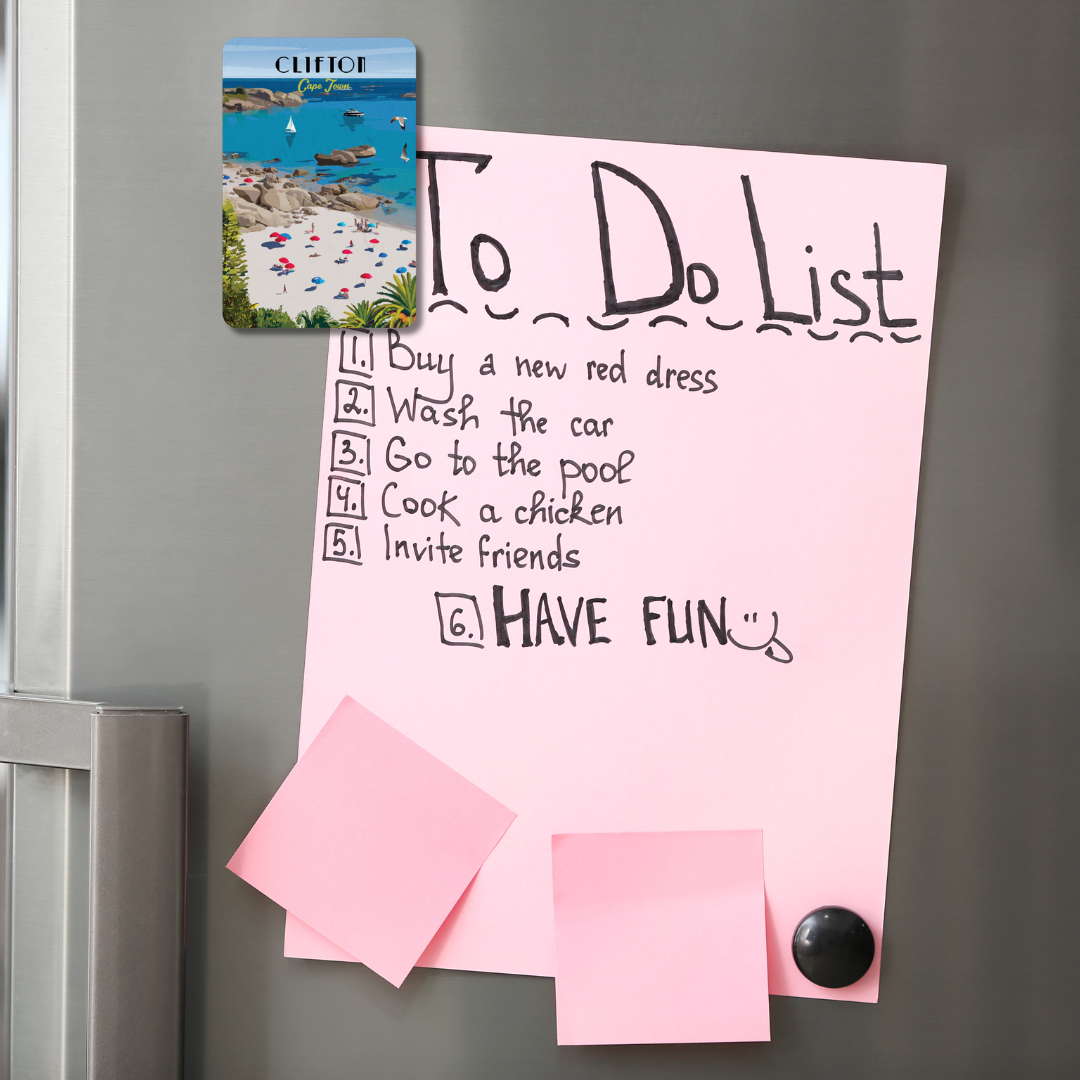 CLIFTON
Cape Town
To Do List
1. Buy a new red dress
2. Wash the car
3. Go to the pool
4. Cook a chicken
5. Invite friends
6. HAVE FUN